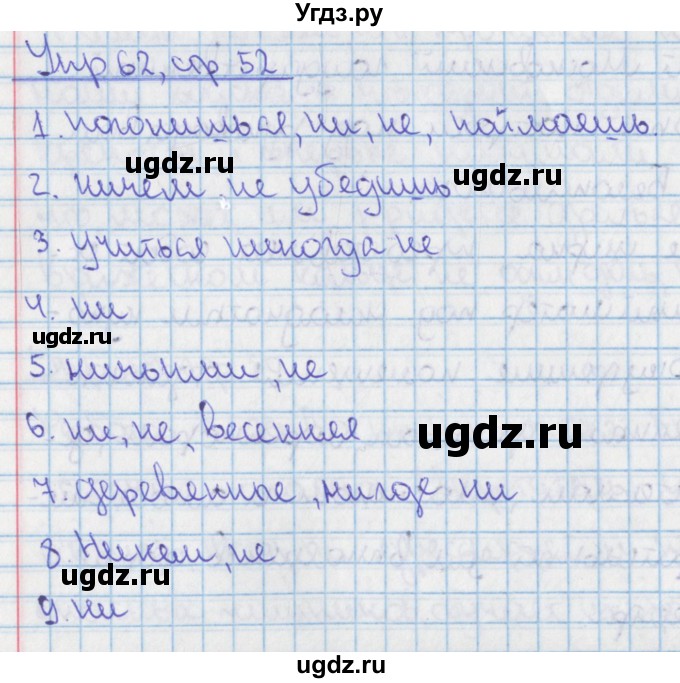 Угдз.ру
Упр 62, стр 52
1. погонишься, ни, не, поймаешь.
ugdz.ru
ugdz.ru
2. ничем не убедишь
3. учиться никогда не
4. ни
ugdz.ru
5. ничьими, не
ugdz.ru
6. ни, не, весенняя
7. деревянные, нигде ни
8. Никем, не
ugdz.ru
9. ни
ugdz.ru